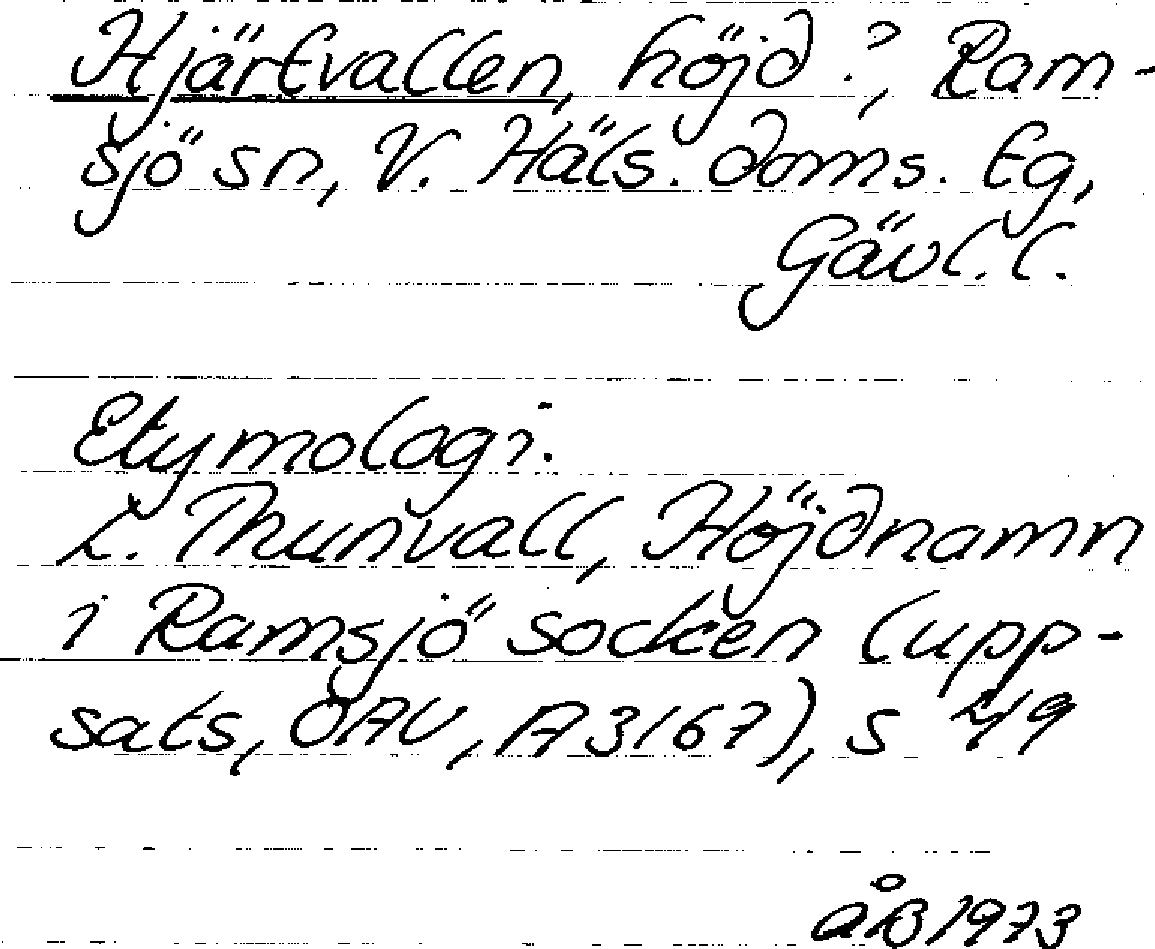 Hjärtvallen, höjd ?, Ram-
sjö sn, V. Häls. doms. tg,
Gävl. l.
Etymologi.
L. Thunvall, Höjdnamn
i Ramsjö socken (upp-
sats, OAU, A3167), s 49
åB 1973